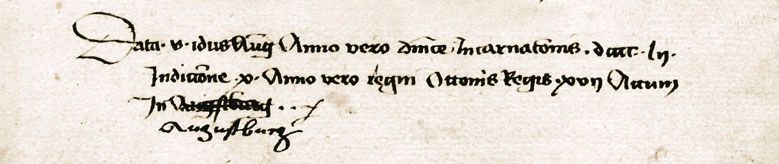 Data · v · idus Aug Anno vero dnice Incarnatonis · dcccc · lij ·
Indictone · x · Anno vero regni Ottonis Regis · xvij Actum
In Augustburg · ·
Augustburg